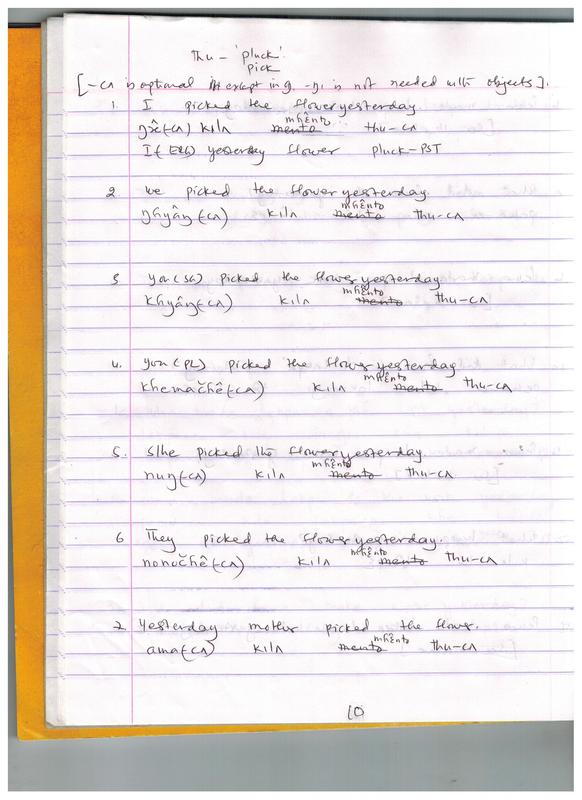 thu - 'pluck'
pick
[-cʌ is optional except in 9. -ŋi is not needed with objects].
1. I picked the flower yesterday.
ŋʌ̂(-cʌ) kilʌ mento mhênto thu-cʌ
I(ERG) yesterday flower pluck-PST
2 we picked the flower yesterday.
ŋhyâŋ(-cʌ) kilʌ mento mhênto thu-cʌ
3 you(SG) picked the flower yesterday.
khyâŋ(-cʌ) kilʌ mento mhênto thu-cʌ
4. you(PL) picked the flower yesterday
khemačhê(-cʌ) kilʌ mento mhênto thu-cʌ
5. S/he picked the flower yesterday.
nuŋ(-cʌ) kilʌ mento mhênto thu-cʌ
6 They picked the flower yesterday.
nonočhê(-cʌ) kilʌ mento mhênto thu-cʌ
7. Yesterday mother picked the flower.
ama(-cʌ) kilʌ mento mhênto thu-cʌ
10